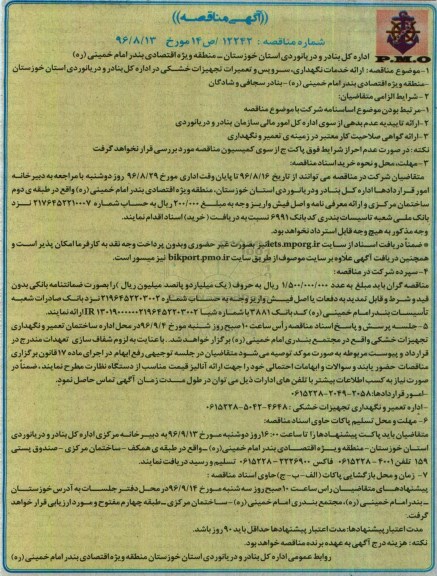 ((آگهی مناقصه))
شماره مناقصه : ۱۲۲۴۳ /ص۱۴ مورخ ۹۶/۸/۱۳
P.M.O
اداره کل بنادر و دریانوردی استان خوزستان – منطقه ویژه اقتصادی بندر امام خمینی (ره)
۱-موضوع مناقصه : ارائه خدمات نگهداری، سرویس و تعمیرات تجهیزات خشکی در اداره کل بنادر و دریانوردی استان خوزستان
–منطقه ویژه اقتصادی بندر امام خمینی (ره) –بنادر سجافی و شادگان
۲- شرایط الزامی متقاضیان:
۱-مرتبط بودن موضوع اساسنامه شرکت با موضوع مناقصه
۲-ارائه تاییدیه عدم بدهی از سوی اداره کل امور مالی سازمان بنادر و دریانوردی
۳-ارائه گواهی صلاحیت کار معتبر در زمینه ی تعمیر و نگهداری
نکته : در صورت عدم احراز شرایط فوق پاکت ج از سوی کمیسیون مناقصه مورد بررسی قرار نخواهد گرفت
۳-مهلت، محل و نحوه خرید اسناد مناقصه:
متقاضیان شرکت در مناقصه می توانند از تاریخ ۹۶/۸/۱۶ تا پایان وقت اداری مورخ ۹۶/۸/۲۹ روز دوشنبه با مراجعه به دبیرخانه
امور قراردادها اداره کل بنادر و دریانوردی استان خوزستان، منطقه ویژه اقتصادی بندر امام خمینی (ره) واقع در طبقه ی دوم
ساختمان مرکزی و ارائه معرفی نامه و اصل فیش واریز وجه به مبلغ ۲۰۰/۰۰۰ ریال به حساب شماره ۲۱۷۶۴۵۲۲۱۰۰۰۷ نزد
بانک ملی شعبه تاسیسات بندری کد بانک ۶۹۹۱ نسبت به دریافت (خرید) اسناد اقدام نمایند.
وجه مذکور به هیچ وجه قابل استرداد نخواهد بود.
* ضمناً دریافت اسناد از سایت iets.mporg.ir نیز بصورت غیر حضوری و بدون پرداخت وجه نقد به کارفرما امکان پذیر است و
همچنین دریافت آگهی علاوه بر سایت موصوف از طریق سایت bikport.pmo.ir نیز میسور است.
۴- سپرده شرکت در مناقصه :
مناقصه گران باید مبلغ به عدد ۱/۵۰۰/۰۰۰/۰۰۰ ریال به حروف (یک میلیارد و پانصد میلیون ریال) را بصورت ضمانتنامه بانکی بدون
قید و شرط و قابل تمدید به دفعات یا اصل فیش واریز وجه به حساب شماره ۲۱۹۶۴۵۲۲۰۳۰۰۲ نزد بانک صادرات شعبه
تأسیسات بندر امام خمینی (ره) کد بانک ۳۸۸۱ با شماره شبا
۵-جلسه پرسش و پاسخ اسناد مناقصه رأس ساعت ۱۰ صبح روز شنبه مورخ ۹۶/۹/۴ در محل اداره ساختمان تعمیر و نگهداری
تجهیزات خشکی واقع در مجتمع بندری امام خمینی (ره) برگزار خواهد شد. با عنایت به لزوم شفاف سازی تعهدات مندرج در
قرارداد و پیوست مربوطه به صورت موکد توصیه می شود متقاضیان در جلسه توجیهی رفع ابهام در اجرای ماده ۱۷ قانون برگزاری
مناقصات حضور یابند و سوالات و ابهامات احتمالی خود را جهت ارائه آنالیز قیمت مناسب از دستگاه نظارت مطرح نمایند، ضمناً در
صورت نیاز به کسب اطلاعات بیشتر با تلفن های ادارات ذیل می توان در طول مدت زمان آگهی تماس حاصل نمود.
-امور قراردادها: ۲۰۵۸-۲۰۴۹-۰۶۱۵۲۲۸
-اداره تعمیر و نگهداری تجهیزات خشکی : ۴۶۴۸-۵۰۴۲-۰۶۱۵۲۲۸
۶- مهلت و محل تسلیم پاکات حاوی اسناد مناقصه :
متقاضیان باید پاکت پیشنهادها را تا ساعت ۱۶:۰۰ روز دوشنبه مورخ ۹۶/۹/۱۳ به دبیرخانه مرکزی اداره کل بنادر و دریانوردی
استان خوزستان- منطقه ویژه اقتصادی بندر امام خمینی (ره) -واقع در طبقه ی همکف -ساختمان مرکزی - صندوق پستی
۱۵۹ تلفن ۴۰۰۱ - ۰۶۱۵۲۲۸ فاکس ۲۳۳۶۹۰۰ - ۰۶۱۵۲۲۸ تسلیم و رسید دریافت نمایند.
۷- زمان و محل بازگشایی پاکات (الف-ب-ج) حاوی اسناد مناقصه :
پیشنهادهای متقاضیان راس ساعت ۱۰ صبح روز سه شنبه مورخ ۹۶/۹/۱۴ در محل دفتر جلسات به آدرس خوزستان
–بندر امام خمینی (ره)، مجتمع بندری امام خمینی (ره) –ساختمان مرکزی –طبقه چهارم مفتوح و مورد ارزیابی قرار خواهد
گرفت.
مدت اعتبار پیشنهادها: مدت اعتبار پیشنهادها حداقل باید ۹۰ روز باشد.
نکته : هزینه درج آگهی به عهده برنده مناقصه خواهد بود.
روابط عمومی اداره کل بنادر و دریانوردی استان خوزستان منطقه ویژه اقتصادی بندر امام خمینی (ره)